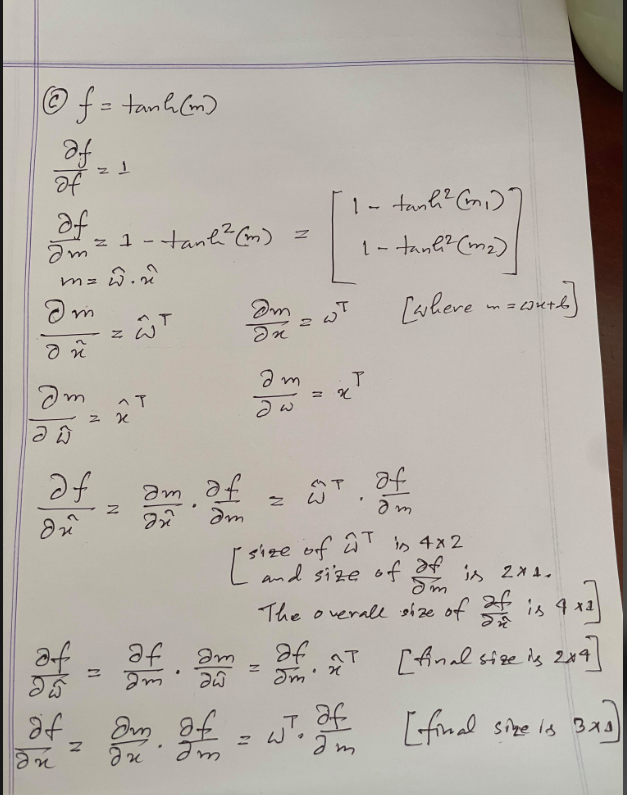 ⓒ f = tanh(m)
∂f/∂f = 1
∂f/∂m = 1 - tanh²(m) = [1 - tanh²(m₁)
1 - tanh²(m₂)]
m = ŵ.x̂
∂m/∂x̂ = ŵᵀ ∂m/∂x = wᵀ [where m = wx+b]
∂m/∂ŵ = x̂ᵀ ∂m/∂w = xᵀ
∂f/∂x̂ = ∂m/∂x̂ . ∂f/∂m = ŵᵀ . ∂f/∂m
[size of ŵᵀ is 4x2
and size of ∂f/∂m is 2x1.
The overall size of ∂f/∂x̂ is 4x1]
∂f/∂ŵ = ∂f/∂m . ∂m/∂ŵ = ∂f/∂m . x̂ᵀ [final size is 2x4]
∂f/∂x = ∂m/∂x . ∂f/∂m = wᵀ . ∂f/∂m [final size is 3x1]